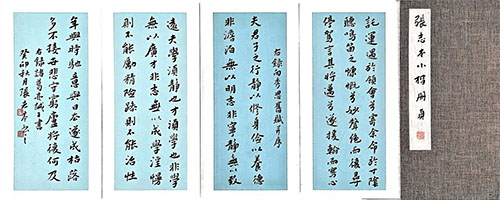 張志本小楷册頁
託運遇於領會兮寄余命於寸陰
聽鳴笛之慷慨兮妙聲絕而復尋
停駕言其將邁兮遂援翰而寫心
右錄向秀思舊賦并序
夫君子之行靜以修身儉以養德
非澹泊無以明志非寧靜無以致
遠夫學須靜也才須學也非學
無以廣才非志無以成學淫慢
則不能勵精險躁則不能治性
年與時馳意與日去遂成枯落
多不接世悲守窮廬將復何及
右錄諸葛亮誡子書
癸卯秋月張志本